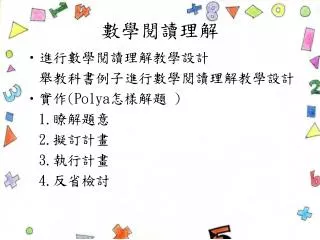 數學閱讀理解
•進行數學閱讀理解教學設計
舉教科書例子進行數學閱讀理解教學設計
•實作(Polya怎樣解題 )
1.瞭解題意
2.擬訂計畫
3.執行計畫
4.反省檢討